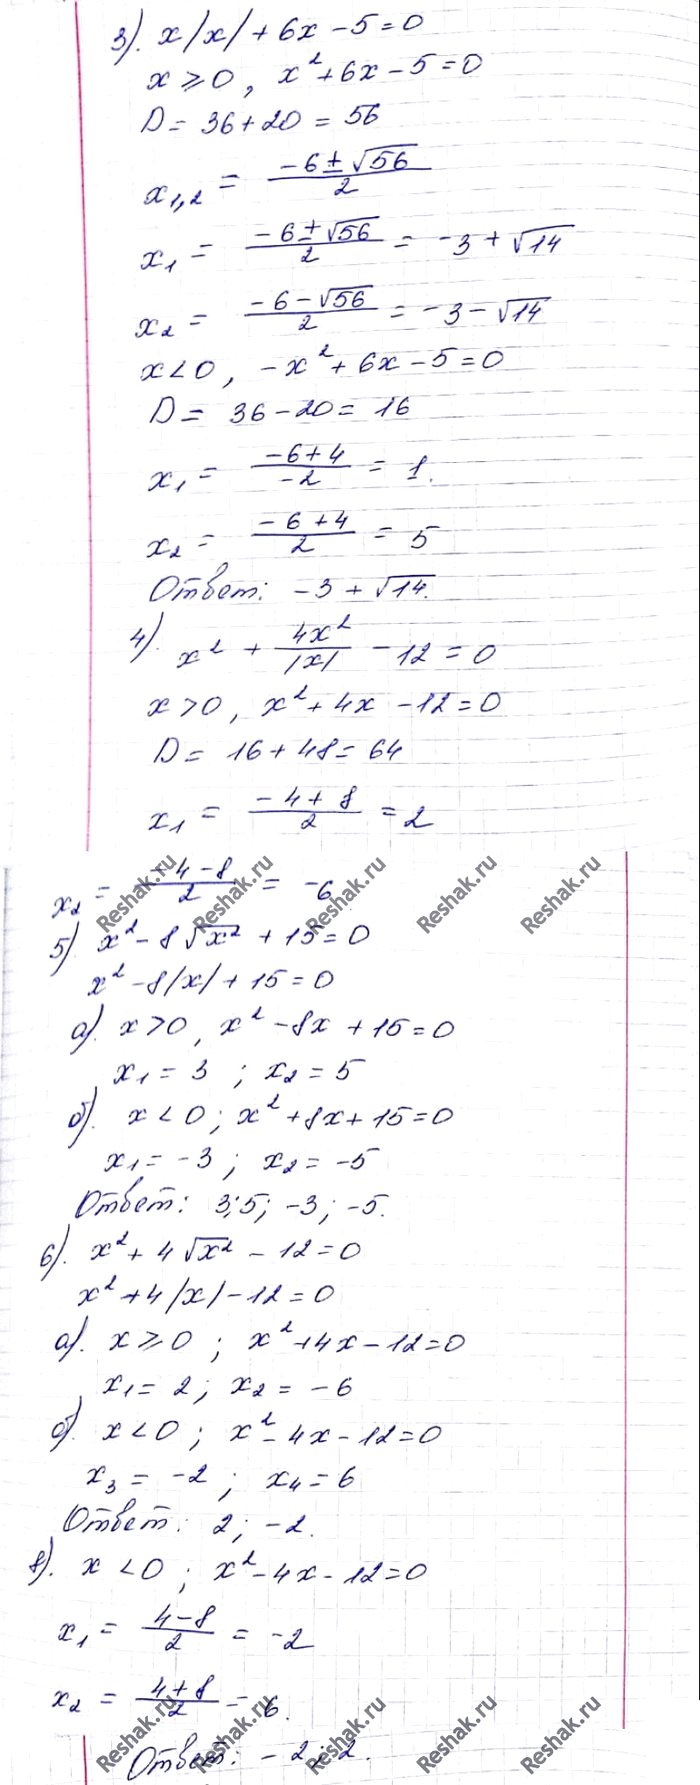 3). x|x| + 6x - 5 = 0
x ⩾ 0, x² + 6x - 5 = 0
D = 36 + 20 = 56
x₁,₂ = (-6 ± √56)/2
x₁ = (-6 ± √56)/2 = -3 + √14
x₂ = (-6 - √56)/2 = -3 - √14
x < 0, -x² + 6x - 5 = 0
D = 36 - 20 = 16
x₁ = (-6 + 4)/(-2) = 1.
x₂ = (-6 + 4)/2 = 5
Ответ: -3 + √14.
4). x² + 4x²/|x| - 12 = 0
x > 0, x² + 4x - 12 = 0
D = 16 + 48 = 64
x₁ = (-4 + 8)/2 = 2
x₂ = (-4 - 8)/2 = -6
Reshak.ru Reshak.ru Reshak.ru Reshak.ru Reshak.ru
5) x² - 8√x² + 15 = 0
x² - 8|x| + 15 = 0
а). x > 0, x² - 8x + 15 = 0
x₁ = 3 ; x₂ = 5
б). x < 0; x² + 8x + 15 = 0
x₁ = -3 ; x₂ = -5
Ответ: 3; 5; -3; -5.
6). x² + 4√x² - 12 = 0
x² + 4|x| - 12 = 0
а). x ⩾ 0 ; x² + 4x - 12 = 0
x₁ = 2; x₂ = -6
б). x < 0 ; x² - 4x - 12 = 0
x₃ = -2 ; x₄ = 6
Ответ: 2; -2.
8). x < 0 ; x² - 4x - 12 = 0
x₁ = (4 - 8)/2 = -2
x₂ = (4 + 8)/2 = 6.
Reshak.ru Reshak.ru Reshak.ru Reshak.ru Reshak.ru
Ответ: -2; 2.